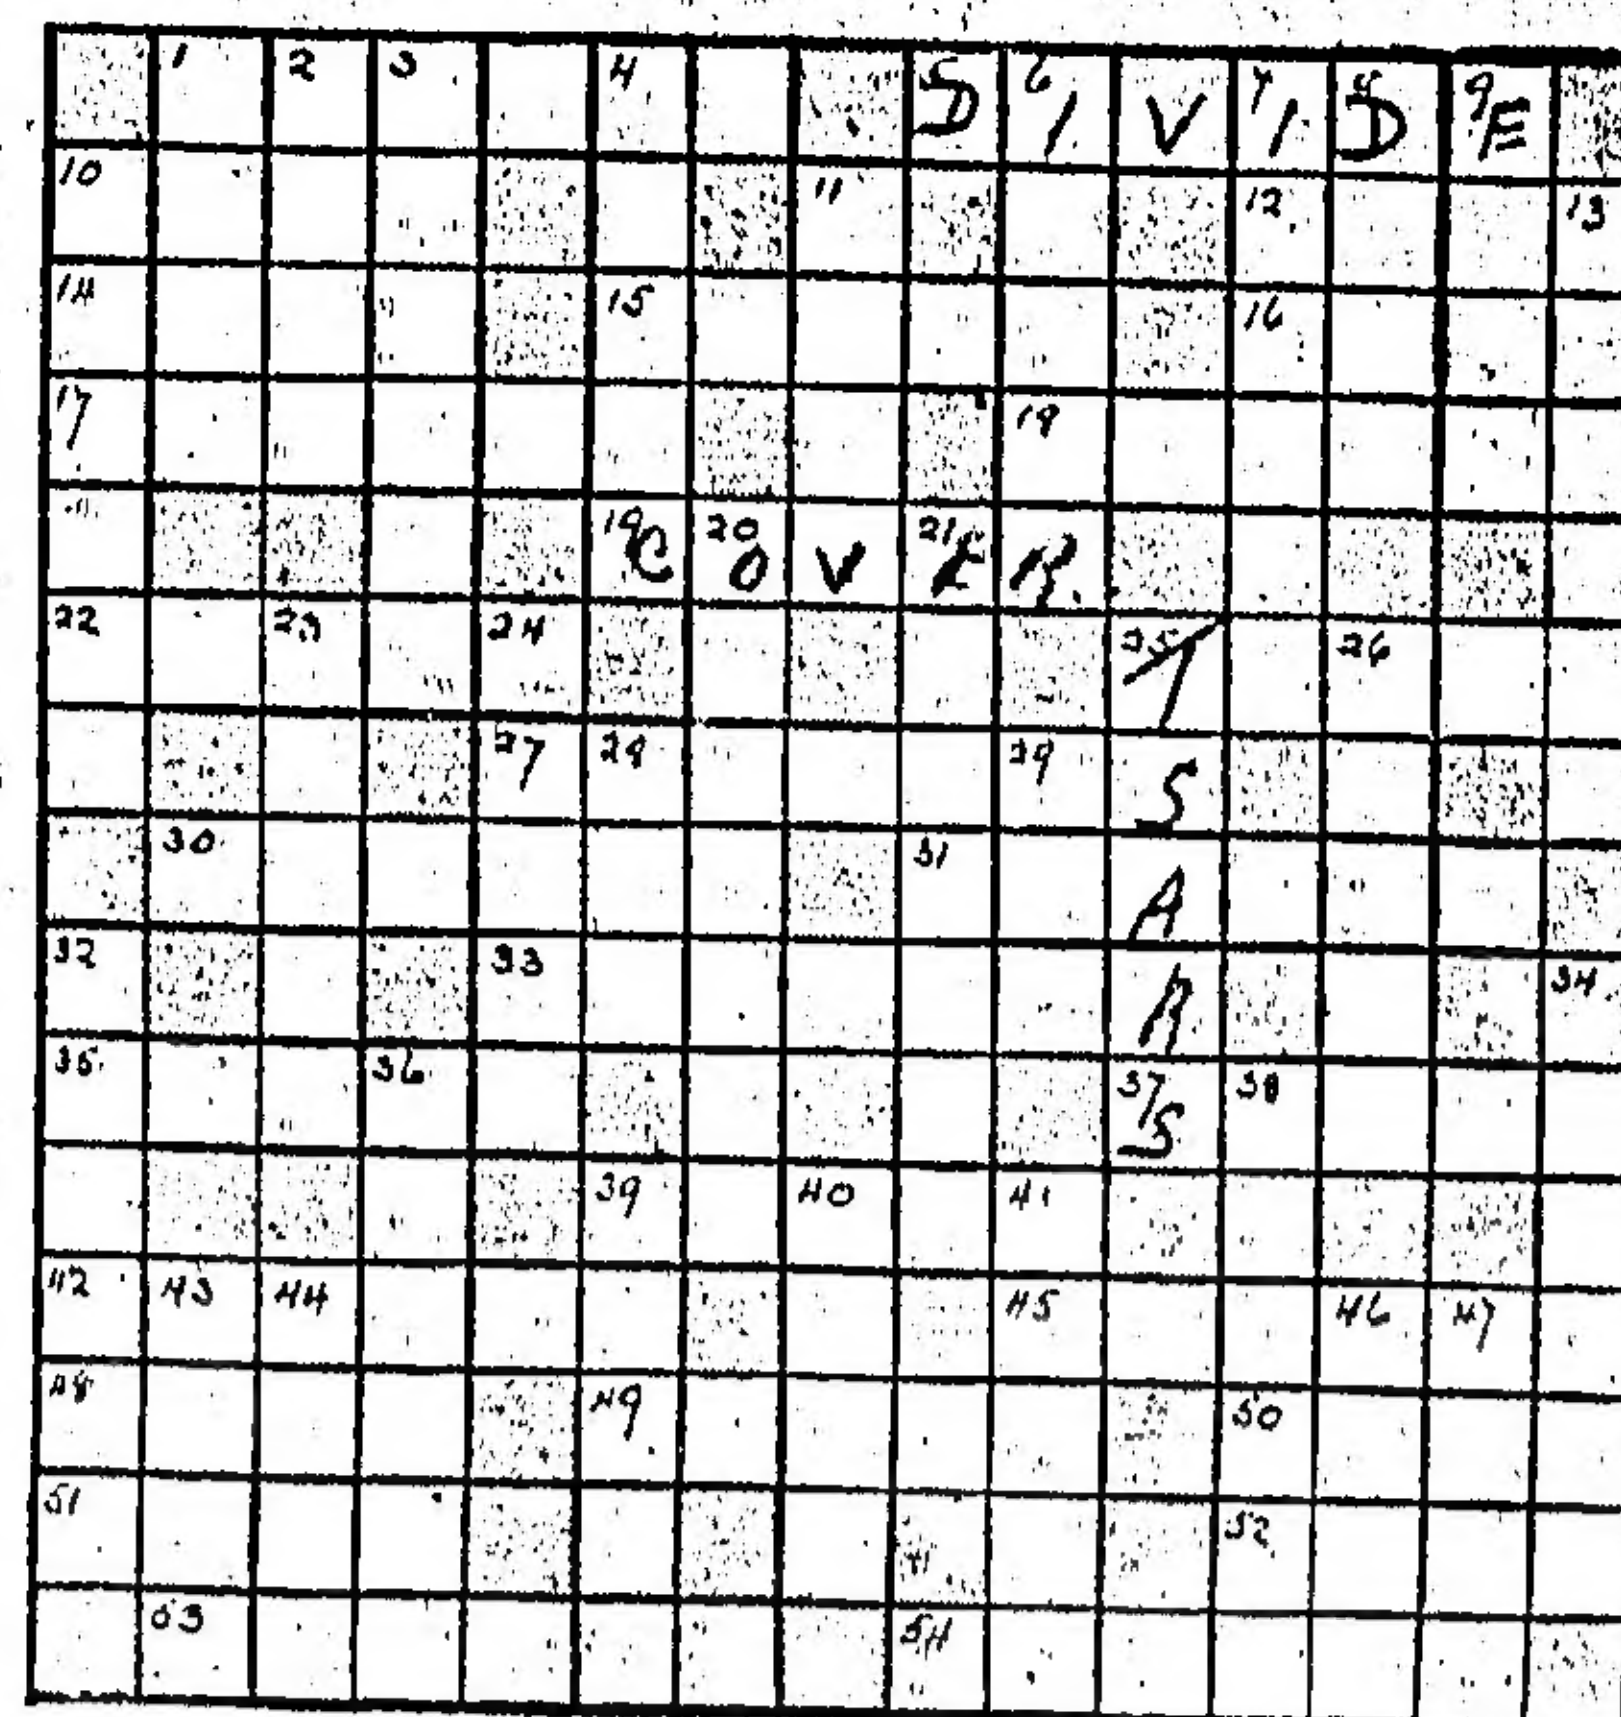 1 2 3 4 5D 6I V 7I 8D 9E
10 11 12 13
14 15 16
17 18
19C 20O V 21E R
22 23 24 25T 26
27 28 29 S
30 31 A
32 33 R 34
35 36 37S 38
39 40 41
42 43 44 45 46 47
48 49 50
51 52
53 54